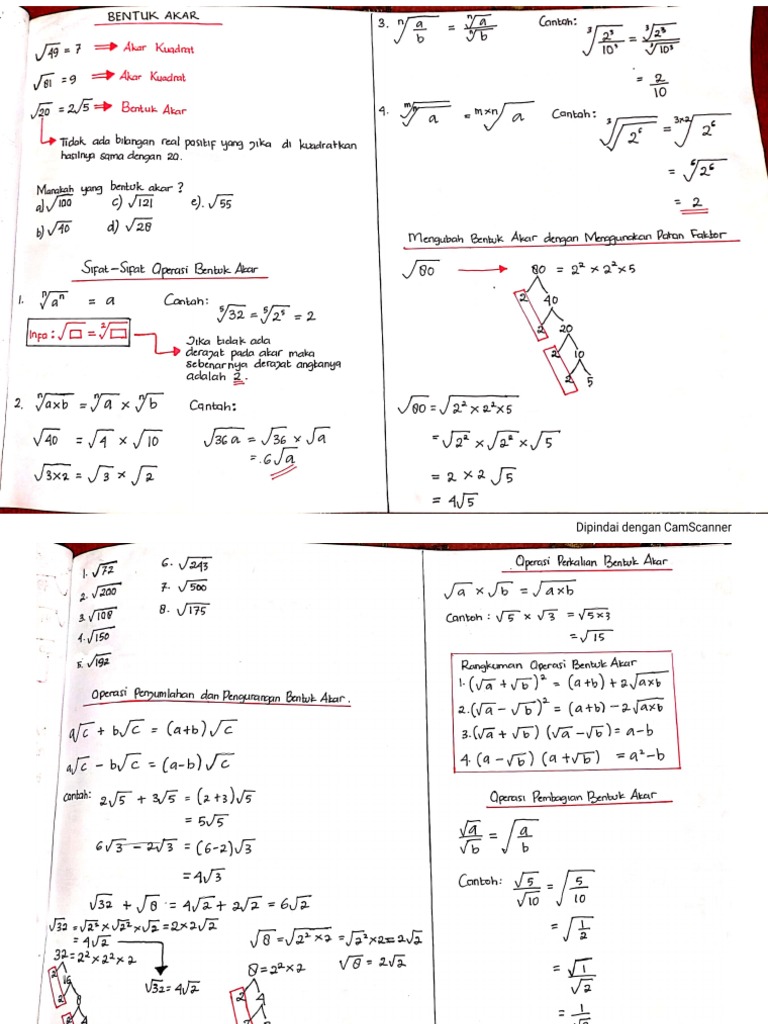 BENTUK AKAR
√49 = 7 ⇒ Akar Kuadrat
√81 = 9 ⇒ Akar Kuadrat
√20 = 2√5 ⇒ Bentuk Akar
Tidak ada bilangan real positif yang jika di kuadratkan
hasilnya sama dengan 20.
Manakah yang bentuk akar ?
a) √100 c) √121 e). √55
b) √40 d) √28
Sifat-Sifat Operasi Bentuk Akar
1. ⁿ√aⁿ = a Contah: ⁵√32 = ⁵√2⁵ = 2
Info : √□ = ²√□
Jika tidak ada
derajat pada akar maka
sebenarnya derajat angkanya
adalah 2.
2. ⁿ√axb = ⁿ√a × ⁿ√b Contah:
√40 = √4 × √10 √36a = √36 × √a
= 6√a
√3×2 = √3 × √2
3. ⁿ√a/b = ⁿ√a/ⁿ√b Contah: ³√2³/10³ = ³√2³/³√10³
= 2/10
4. ᵐ√ⁿ√a = ᵐˣⁿ√a Contah: ³√√2⁶ = ³ˣ²√2⁶
= ⁶√2⁶
= 2
Mengubah Bentuk Akar dengan Menggunakan Pohon Faktor
√80 → 80 = 2² × 2² × 5
2 40
2 20
2 10
2 5
√80 = √2² × 2² × 5
= √2² × √2² × √5
= 2 × 2 √5
= 4√5
Dipindai dengan CamScanner
1. √72 6. √243
2. √200 7. √500
3. √108 8. √175
4. √150
5. √192
Operasi Penjumlahan dan Pengurangan Bentuk Akar.
a√c + b√c = (a+b)√c
a√c − b√c = (a−b)√c
contah: 2√5 + 3√5 = (2+3)√5
= 5√5
6√3 − 2√3 = (6−2)√3
= 4√3
√32 + √8 = 4√2 + 2√2 = 6√2
√32 = √2² × √2² × √2 = 2×2√2
= 4√2
32 = 2² × 2² × 2
2 16
2 8
2 4
√32 = 4√2
√8 = √2² × 2 = √2² × 2 = 2√2
8 = 2² × 2 √8 = 2√2
2 4
Operasi Perkalian Bentuk Akar
√a × √b = √a×b
Contah : √5 × √3 = √5×3
= √15
Rangkuman Operasi Bentuk Akar
1. (√a + √b)² = (a+b) + 2√axb
2. (√a − √b)² = (a+b) − 2√axb
3. (√a + √b) (√a − √b) = a−b
4. (a − √b) (a + √b) = a² − b
Operasi Pembagian Bentuk Akar
√a/√b = √a/b
Contah: √5/√10 = √5/10
= √1/2
= √1/√2
= 1/√2